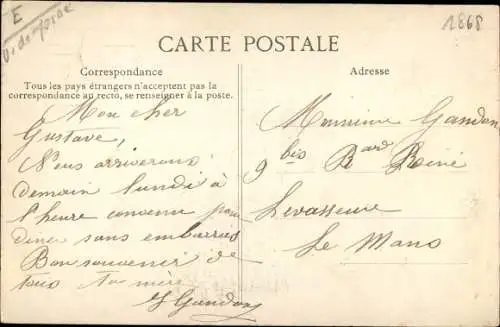 E
V. de poide
2868
CARTE POSTALE
Correspondance
Tous les pays étrangers n'acceptent pas la
correspondance au recto, se renseigner à la poste.
Mon cher
Gustave,
Nous arriverons
demain lundi à
l'heure convenue pour
diner sans embarras
Bon souvenir de
tous Ta mère
Y Gandon
Adresse
Monsieur Gandon
9 bis Bard René
Levasseur
Le Mans